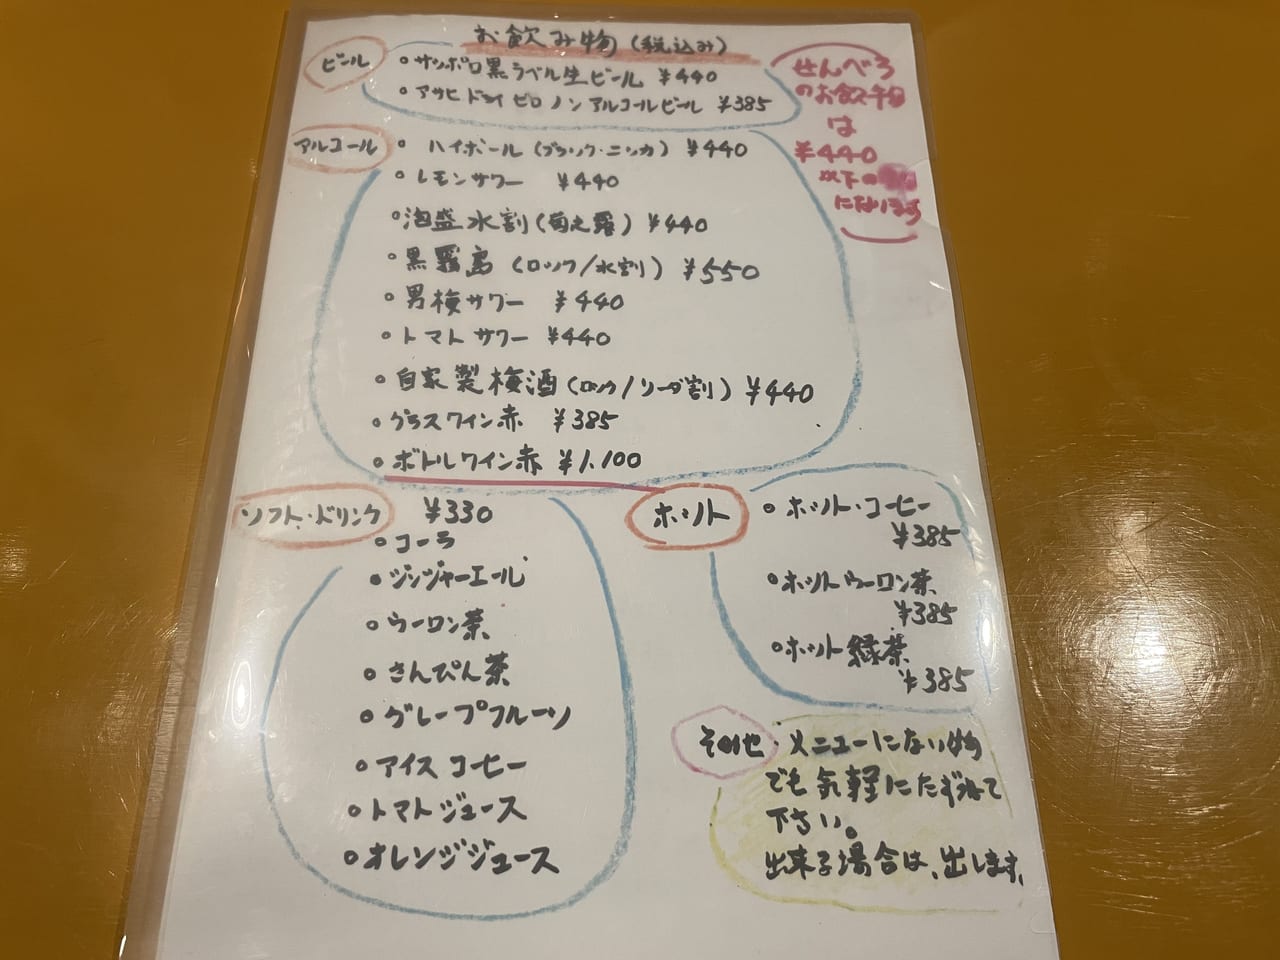 お飲み物(税込み)
ビール
サッポロ黒ラベル生ビール ¥440
アサヒドライゼロノンアルコールビール ¥385
せんべろ
のお飲み物
は
¥440
以下の
になります
アルコール
ハイボール(ブラック・ニッカ) ¥440
レモンサワー ¥440
泡盛水割(菊之露) ¥440
黒霧島(ロック/水割) ¥550
男梅サワー ¥440
トマトサワー ¥440
自家製梅酒(ロック/ソーダ割) ¥440
グラスワイン赤 ¥385
ボトルワイン赤 ¥1.100
ソフト・ドリンク ¥330
コーラ
ジンジャーエール
ウーロン茶
さんぴん茶
グレープフルーツ
アイスコーヒー
トマトジュース
オレンジジュース
ホット
ホット・コーヒー
¥385
ホットウーロン茶
¥385
ホット緑茶
¥385
その他・メニューにない物
でも気軽にたずねて
下さい。
出来る場合は、出します。